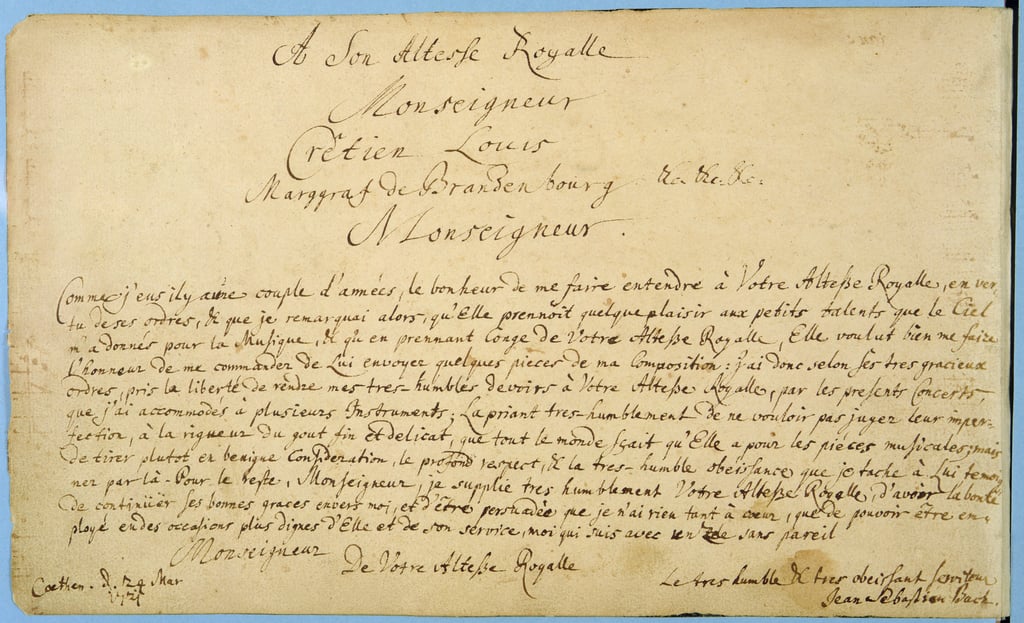 A Son Altesse Royalle
Monseigneur
Crêtien Louis
Marggraf de Brandenbourg &c. &c. &c:
Monseigneur.
Comme j'eus il y a une couple d'années, le bonheur de me faire entendre à Votre Alteße Royalle, en ver-
tu de ses ordres, & que je remarquai alors, qu'Elle prennoit quelque plaisir aux petits talents que le Ciel
m'a donnés pour la Musique, & qu'en prennant Conge de Votre Alteße Royalle, Elle voulut bien me faire
l'honneur de me commander de Lui envoyer quelques pieces de ma Composition: j'ai donc selon ses tres gracieux
ordres, pris la liberté de rendre mes tres-humbles devoirs à Votre Alteße Royalle, par les presents Concerts,
que j'ai accommodés à plusieurs Instruments; La priant tres-humblement de ne vouloir pas juger leur imper-
fection, à la rigueur du gout fin et delicat, que tout le monde sçait qu'Elle a pour les pièces musicales; mais
de tirer plutot en benigne Consideration, le profond respect, & la tres-humble obeissance que je tache à Lui temoi-
ner par là. Pour le reste, Monseigneur, je supplie tres humblement Votre Alteße Royalle, d'avoir la bonté
de continüer ses bonnes graces envers moi, et d'être persuadée que je n'ai rien tant à cœur, que de pouvoir être em-
ployé en des occasions plus dignes d'Elle et de son service, moi qui suis avec un zele sans pareil
Monseigneur
De Votre Alteße Royalle
Coethen. d. 24 Mar
1721
Le tres humble & tres obeissant serviteur
Jean Sebastien Bach.